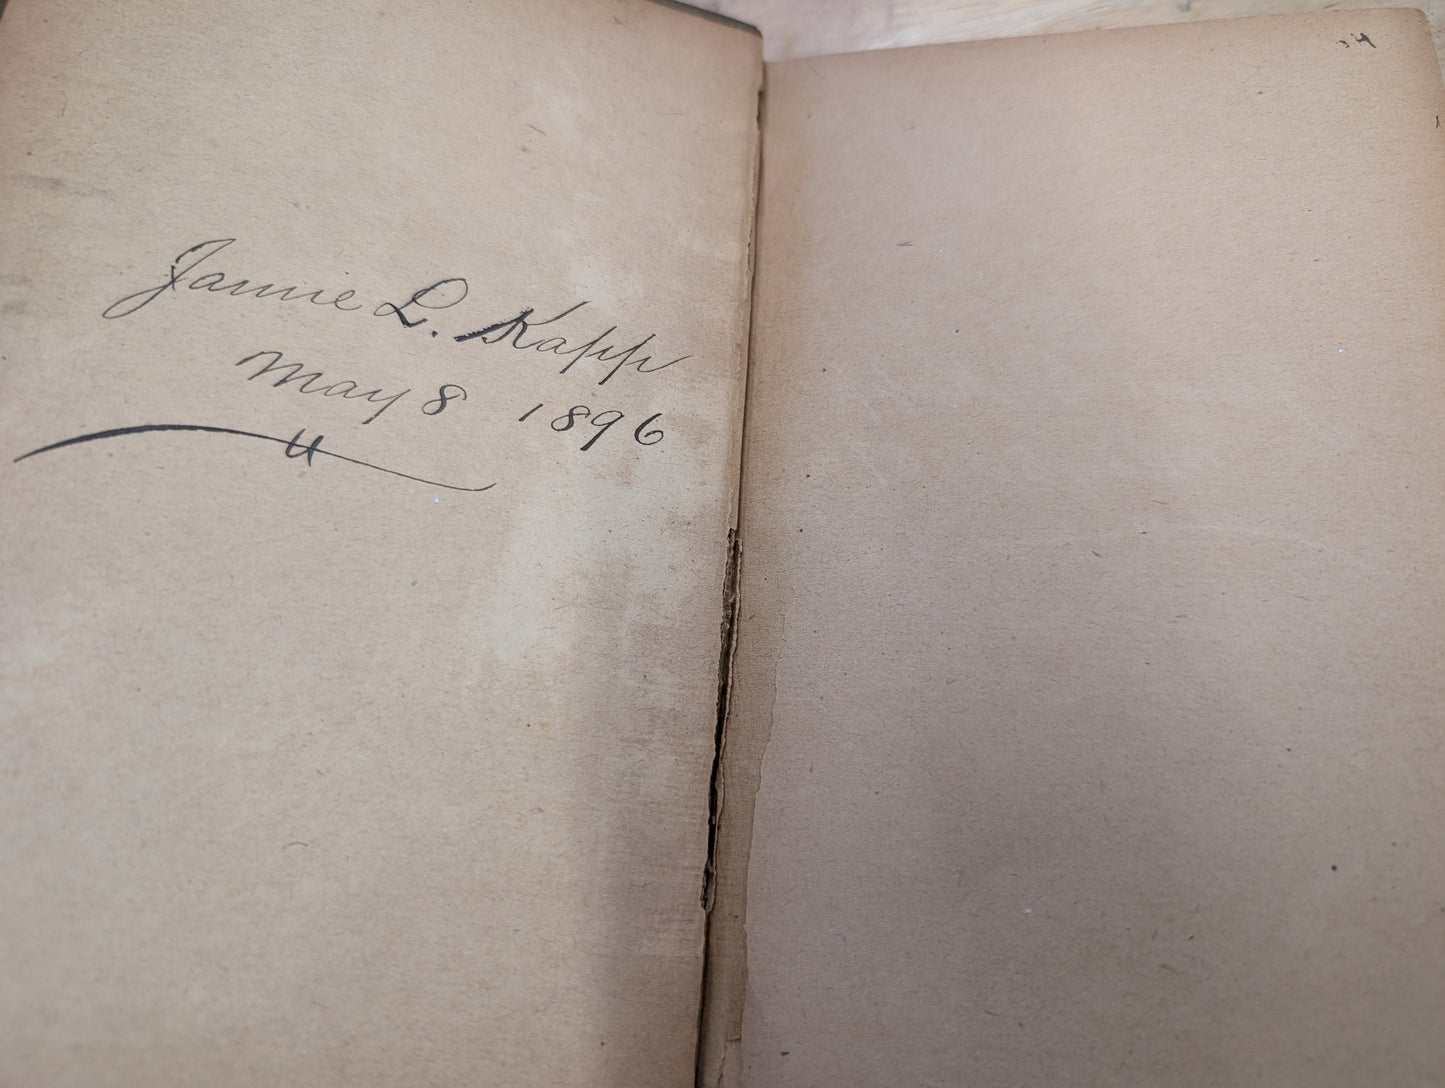 Jannie L. Kapp
May 8 1896